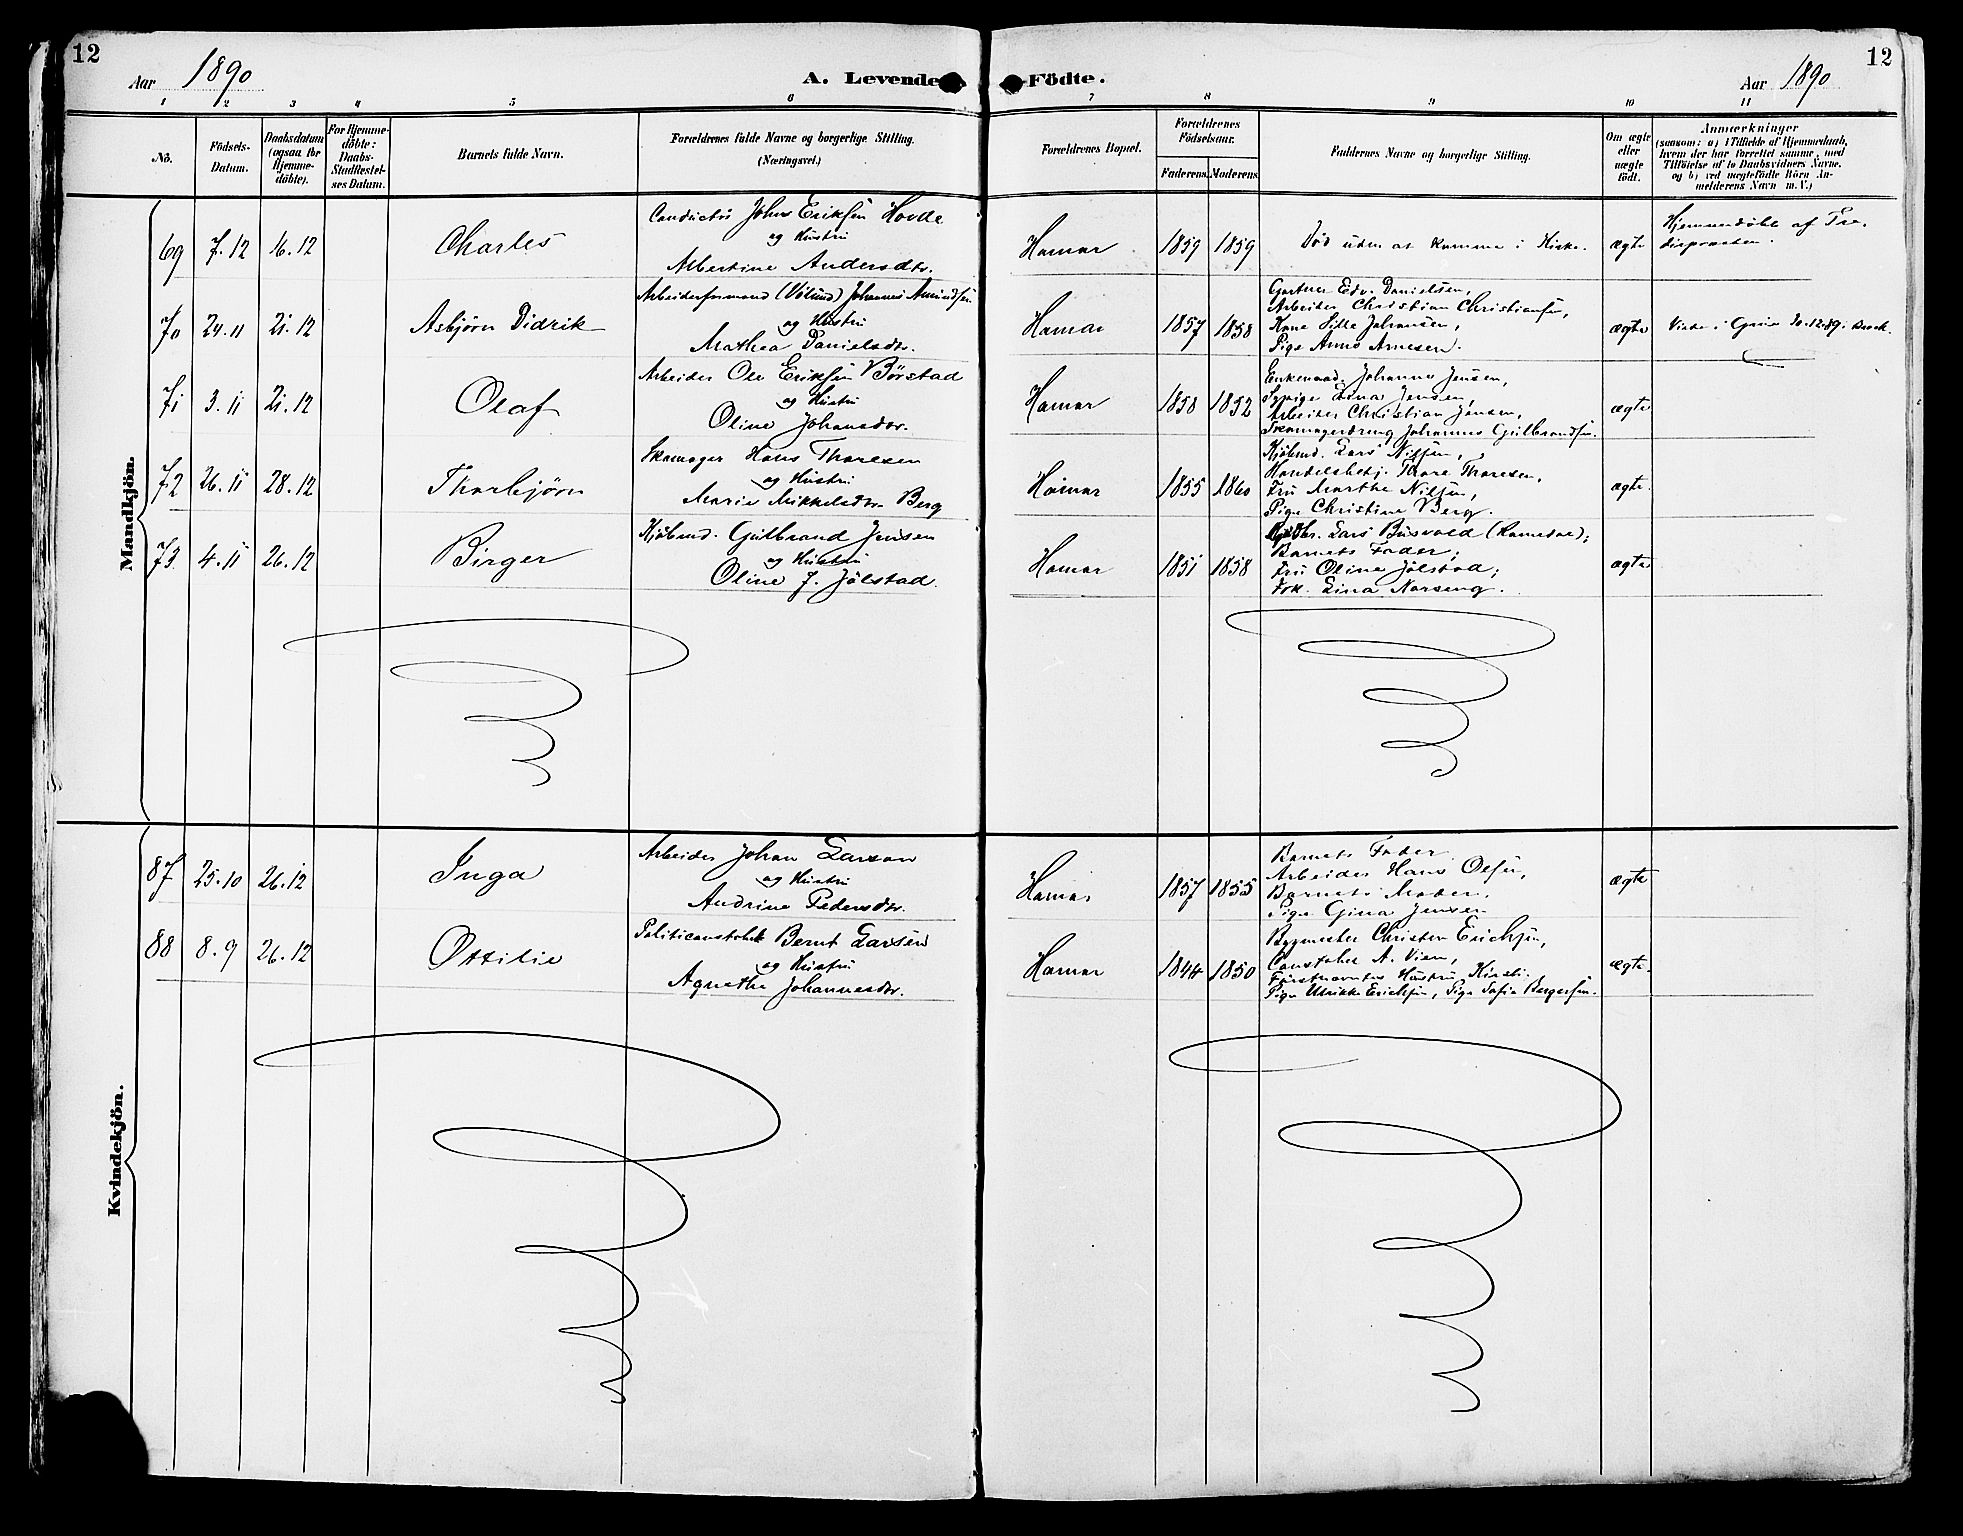 12
Aar 1890
A. Levende
Födte.
Aar 1890
12
1 2 3 4 5 6 7 8 9 10 11
No.
Födsels-
Datum.
Daabsdatum
(ogsaa for
Hjemme-
döbte).
For Hjemme-
döbte:
Daabs-
Stadfæstel-
ses Datum.
Barnets fulde Navn.
Forældrenes fulde Navne og borgerlige Stilling.
(Næringsvei.)
Forældrenes Bopæl.
Forældrenes
Födselsaar.
Faderens. Moderens.
Faddernes Navne og borgerlige Stilling.
Om ægte
eller
uægte
födt.
Anmærkninger
(saasom: a) i Tilfælde af Hjemmedaab,
hvem der har forrettet samme, med
Tilföielse af to Daabsvidners Navne.
og b) ved uægtefödte Börn An-
melderens Navn m. V.)
Mandkjön.
69 7.12 16.12 Charles
Conductør Johns Eriksen Hovde
og Hustru
Albertine Andersdtr.
Hamar 1859 1859
Død uden at komme i Kirke.
ægte
Hjemmedøbt af
70 24.11 21.12 Asbjørn Didrik
Arbeiderformand (Vølund) Johannes Amundsen
og Hustru
Mathea Danielsdtr.
Hamar 1857 1858
Gartner Edv. Danielsen,
Arbeider Christian Christiansen,
Kone Johansen,
Pige Anne Arnesen.
ægte
Viede i 30.12.89.
71 3.11 21.12 Olaf
Arbeider Ole Eriksen Børstad
og Hustru
Oline Johansdtr.
Hamar 1858 1852
Enkemad. Johanne Jensen,
Sypige Lina Jensen,
Arbeider Christian Jensen,
Skomagerdreng Johannes Gulbrandsen.
ægte
72 26.11 28.12 Thorbjørn
Skomager Hans Thoresen
og Hustru
Marie Mikkelsdtr. Berg
Hamar 1855 1860
Kjøbmd. Lars Nilsen,
Handelsbetj. Thore Thoresen,
Fru Marthe Nilsen,
Pige Christine Berg.
ægte.
73 4.11 26.12 Birger
Kjøbmd. Gulbrand Jensen
og Hustru
Oline J. Jølstad.
Hamar 1851 1858
Lars Busvold (Romedal);
Barnets Fader;
Fru Oline Jølstad;
Frk. Lina Narseng.
ægte
Kvindekjön.
87 25.10 26.12 Inga
Arbeider Johan Larsen
og Hustru
Andrine Pedersdtr.
Hamar 1857 1855
Barnets Fader.
Arbeider Hans Olsen,
Barnets Moder,
Pige Gina Jensen
ægte
88 8.9 26.12 Ottilie
Politiconstabel Bernt Larsen
og Hustru
Agnethe Johannesdtr.
Hamar 1844 1850
Bygmester Christen Erichsen,
Constabel A. Vien,
Førstnævntes Hustru, Kirsti.
Pige Ulrikke Erichsen, Pige Sofie Bergersen.
ægte.